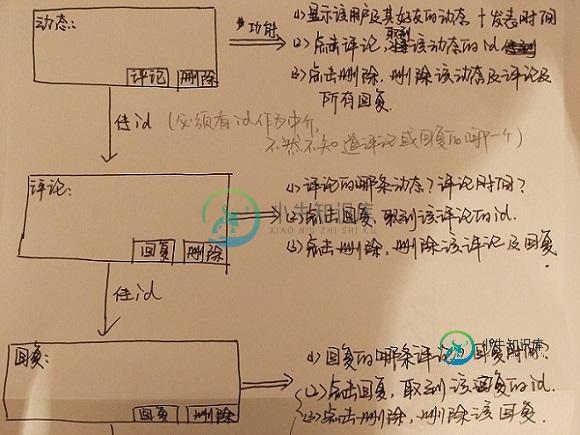 动态:
评论 删除
*功能
(1) 显示该用户及其好友的动态 + 发表时间
(2) 点击评论, 取到该动态的id
(3) 点击删除, 删除该动态及评论及
所有回复.
传id (必须有id作为中介,
不然不知道评论或回复的哪一个)
评论:
回复 删除
(1) 评论的哪条动态? 评论时间?
(2) 点击回复, 取到该评论的id.
(3) 点击删除, 删除该评论及回复.
小牛知识库
XIAO NIU ZHI SHI KU
传id
回复:
回复 删除
(1) 回复的哪条评论? 回复时间?
(2) 点击回复, 取到该回复的id.
(3) 点击删除, 删除该回复.
小牛知识库